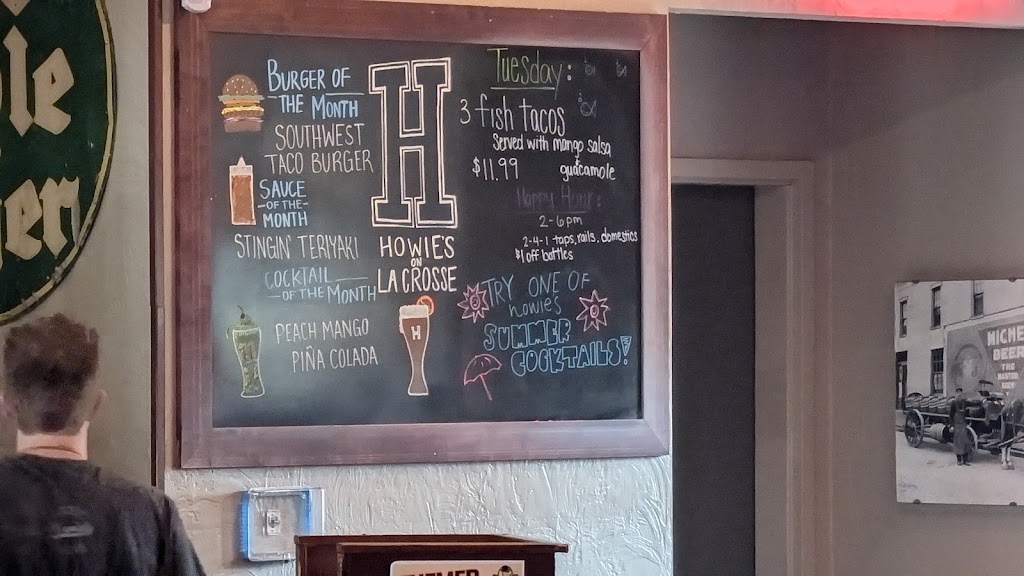 BURGER OF
THE MONTH
SOUTHWEST
TACO BURGER
SAUCE
-OF-THE-
MONTH
STINGIN' TERIYAKI
COCKTAIL
-OF THE MONTH
PEACH MANGO
PIÑA COLADA
H
HOWIE'S
ON
LA CROSSE
H
Tuesday:
3 fish tacos
served with mango salsa
$11.99 guacamole
Happy Hour:
2-6pm
2-4-1 taps, rails, domestics
$1 off bottles
TRY ONE OF
HOWIE'S
SUMMER
COCKTAILS!
BEER
THE